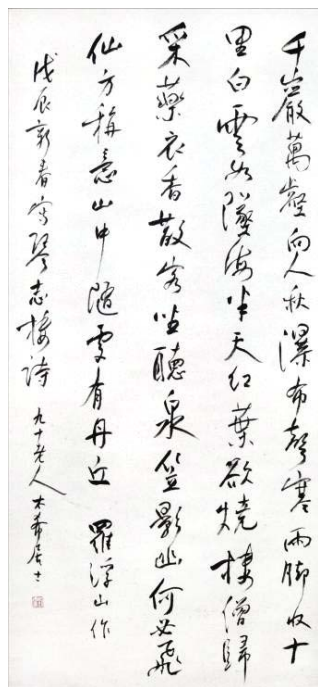 千巖萬壑向人秋瀑布聲寒雨腳收十
里白雲如墜海半天紅葉欲燒樓僧歸
采藥衣香散客坐聽泉笠影幽何必飛
仙方稱意山中隨處有丹丘 羅浮山作
戊辰新春寫琴志樓詩 九十老人木居士